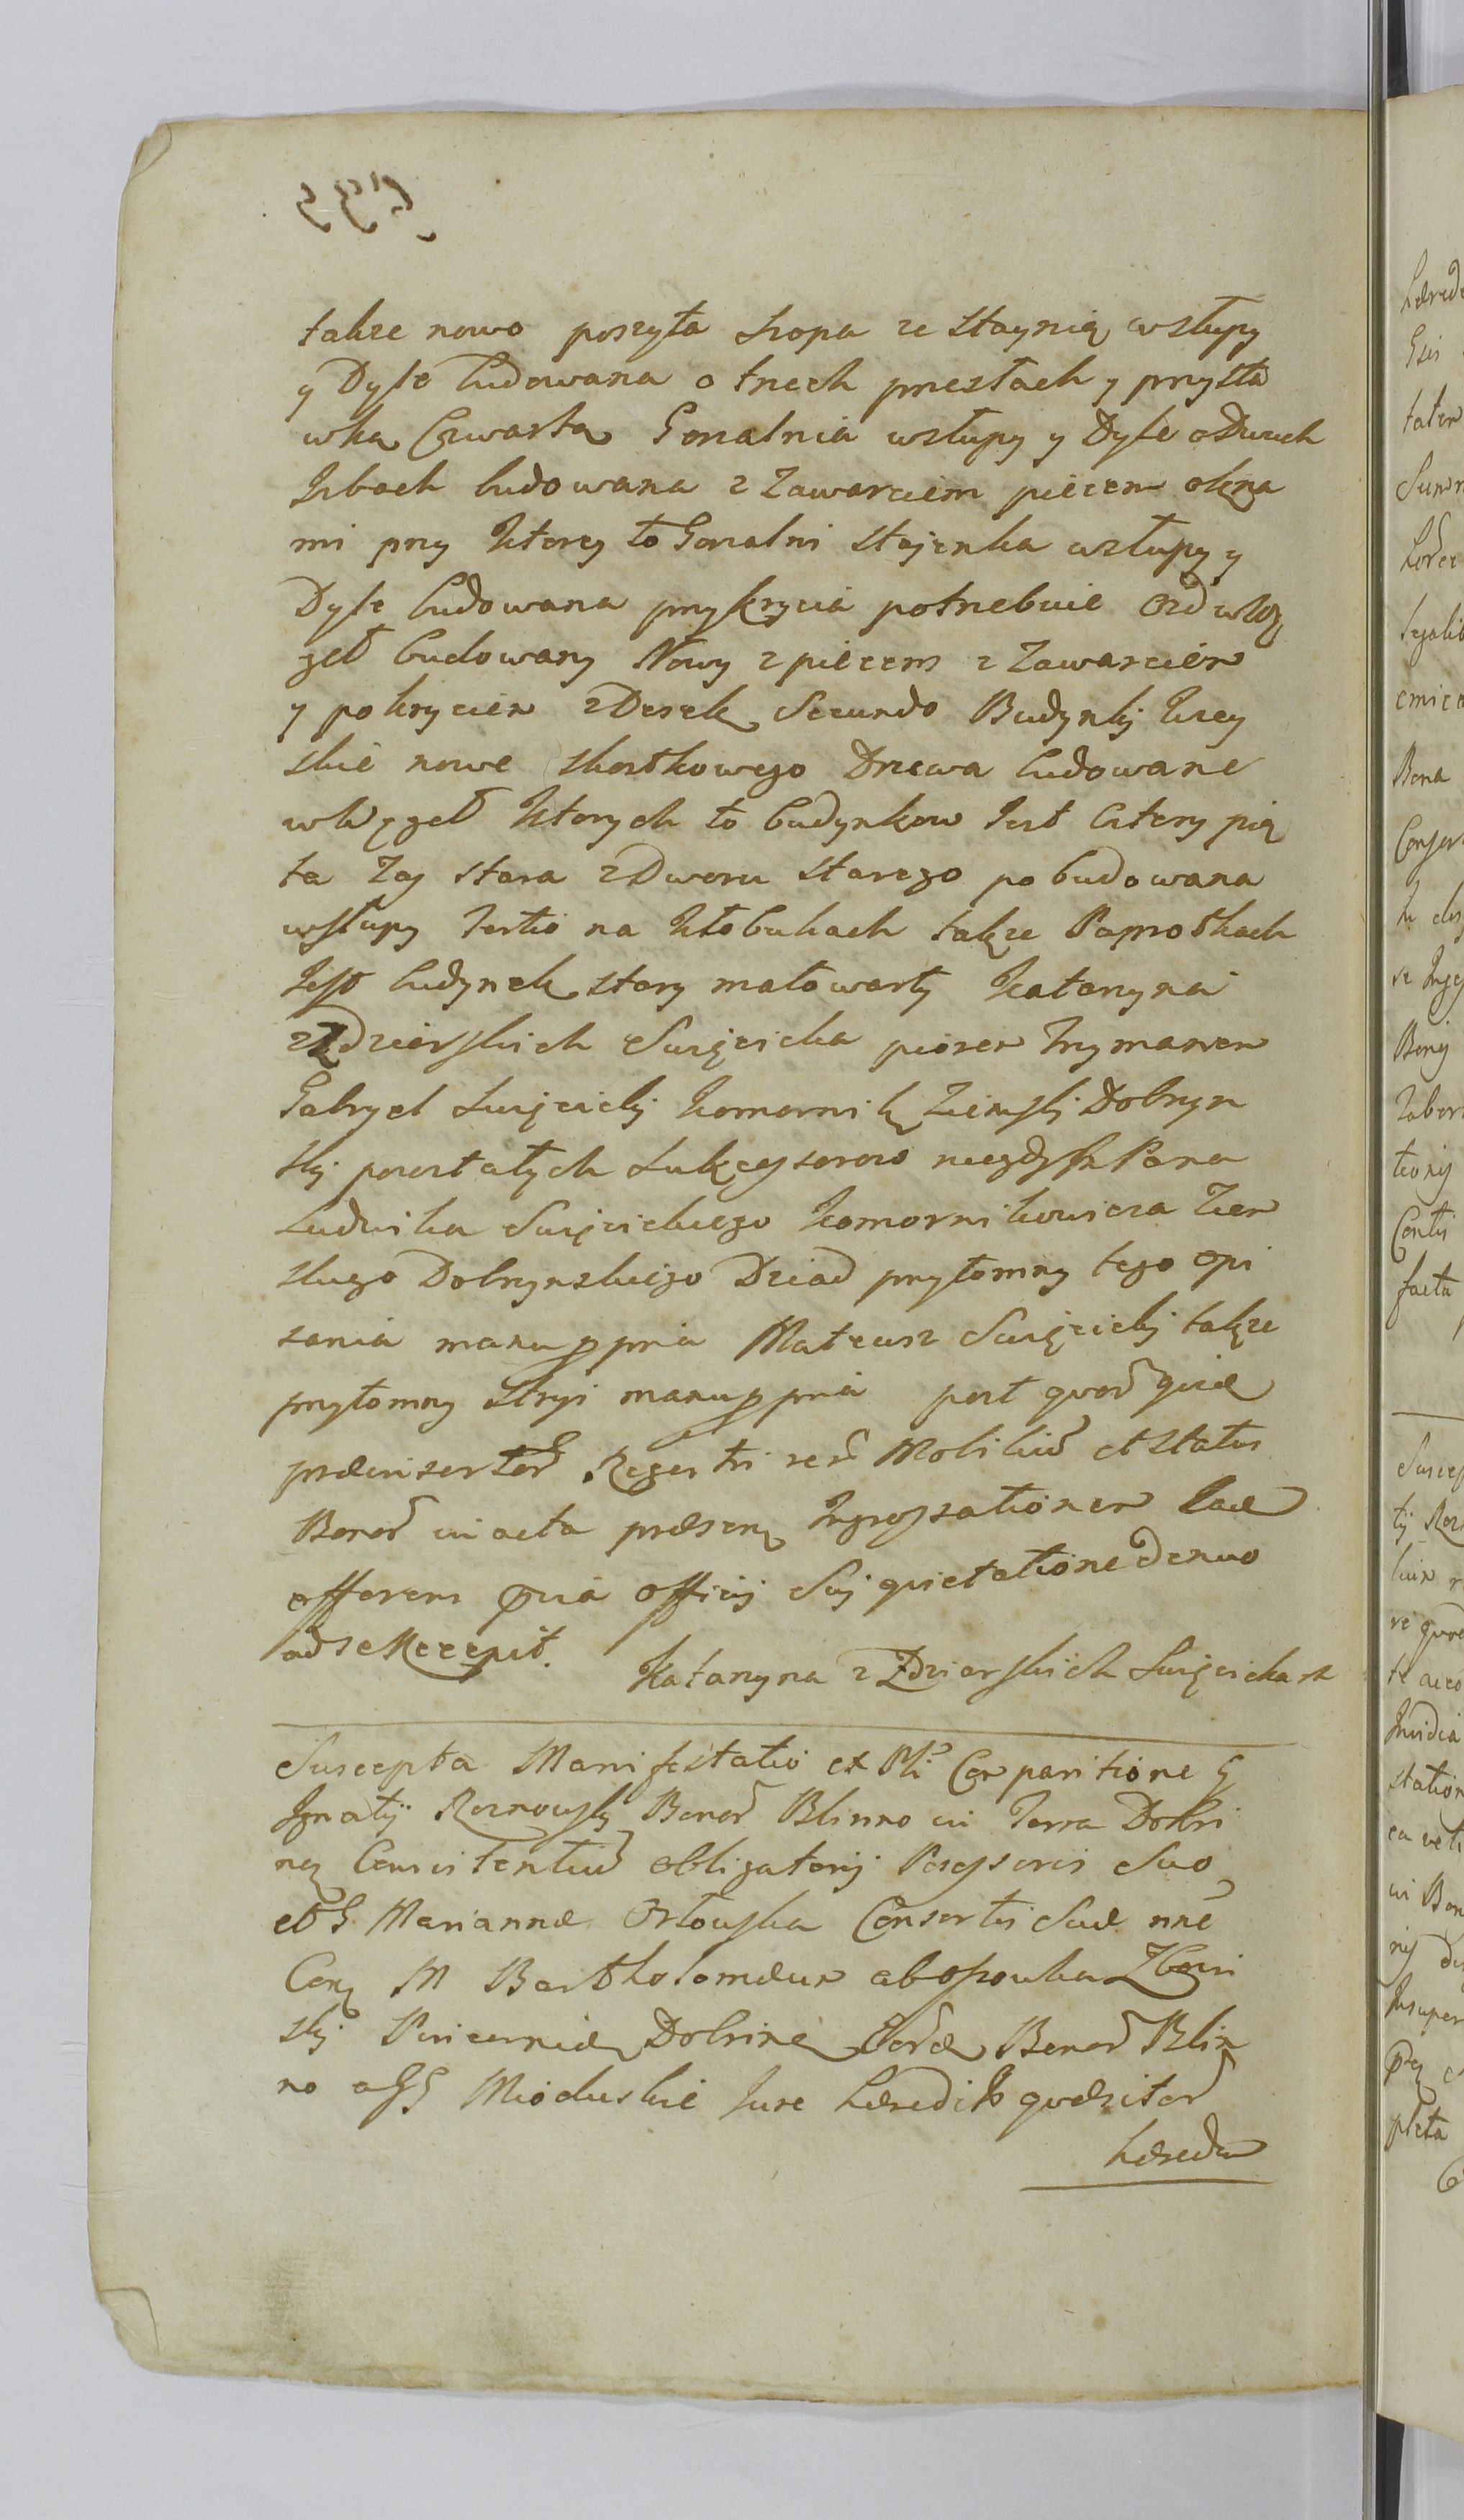 także nowo poszyta szopa ze staynią wsłupy
y Dyle budowana o trzech przesłach y przysta
wka Czwarta Gorzalnia wsłupy y Dyle o Dwuch
Izbach budowana z Zawarciem piecem okna
mi przy Ktorey to Gorzalni stajenka wsłupy y
Dyle budowana przykrycia potrzebuie Ozd wWę
geł budowany Nowy z piecem z Zawarciem
y pokryciem zDesek Secundo Budynki Wiey
skie nowe skostkowego Drzewa budowane
wWęgeł Ktorych to budynkow Jest Cztery pią
ta Zaś stara zDworu starego pobudowana
wsłupy Tertio na Kłobukach także Paprotkach
Jest budynek stary mało warty Katarzyna
z Zdziarskich Swięcicka piorem Trzymanem
Gabryel Swięcicki Komornik Ziemski Dobrzyn
ski pozostałych Sukcessorow niegdyś Pana
Ludwika Swięcickiego Komornikowicza Ziem
skiego Dobrzynskiego Dziad przytomny tego opi
sania manu ppria Mateusz Swięcicki także
przytomny Stryi manu ppria post quod quidē
præinsertor̃ Regestri rer̃ Mobiliũ et Status
Bonor̃ in acta præsenˢ Ingrossationem Eadē
offerens
officij Sui quietatione denuo
ad se Recepit.
Katarzyna z Zdziarskich Swięcicka m
Suscepta Manifestatio et
Comparitione G
Ignatij Roznowski Bonor̃ Blinno in Terra Dobri
nen Consistentiũ obligatorij Possessoris Suo
et G. Mariannæ Orłowska Consortis Suæ nnē
Con M Bartholomæum
Zboin
ski
Dobrinen
Bonor̃ Blin
no a GG Mioduskie Jure hæredit̃ quæsitor̃
hæredem